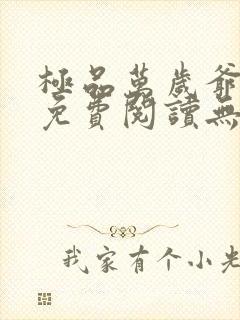 極品萬歲爺
免費閱讀無
我家有个小老